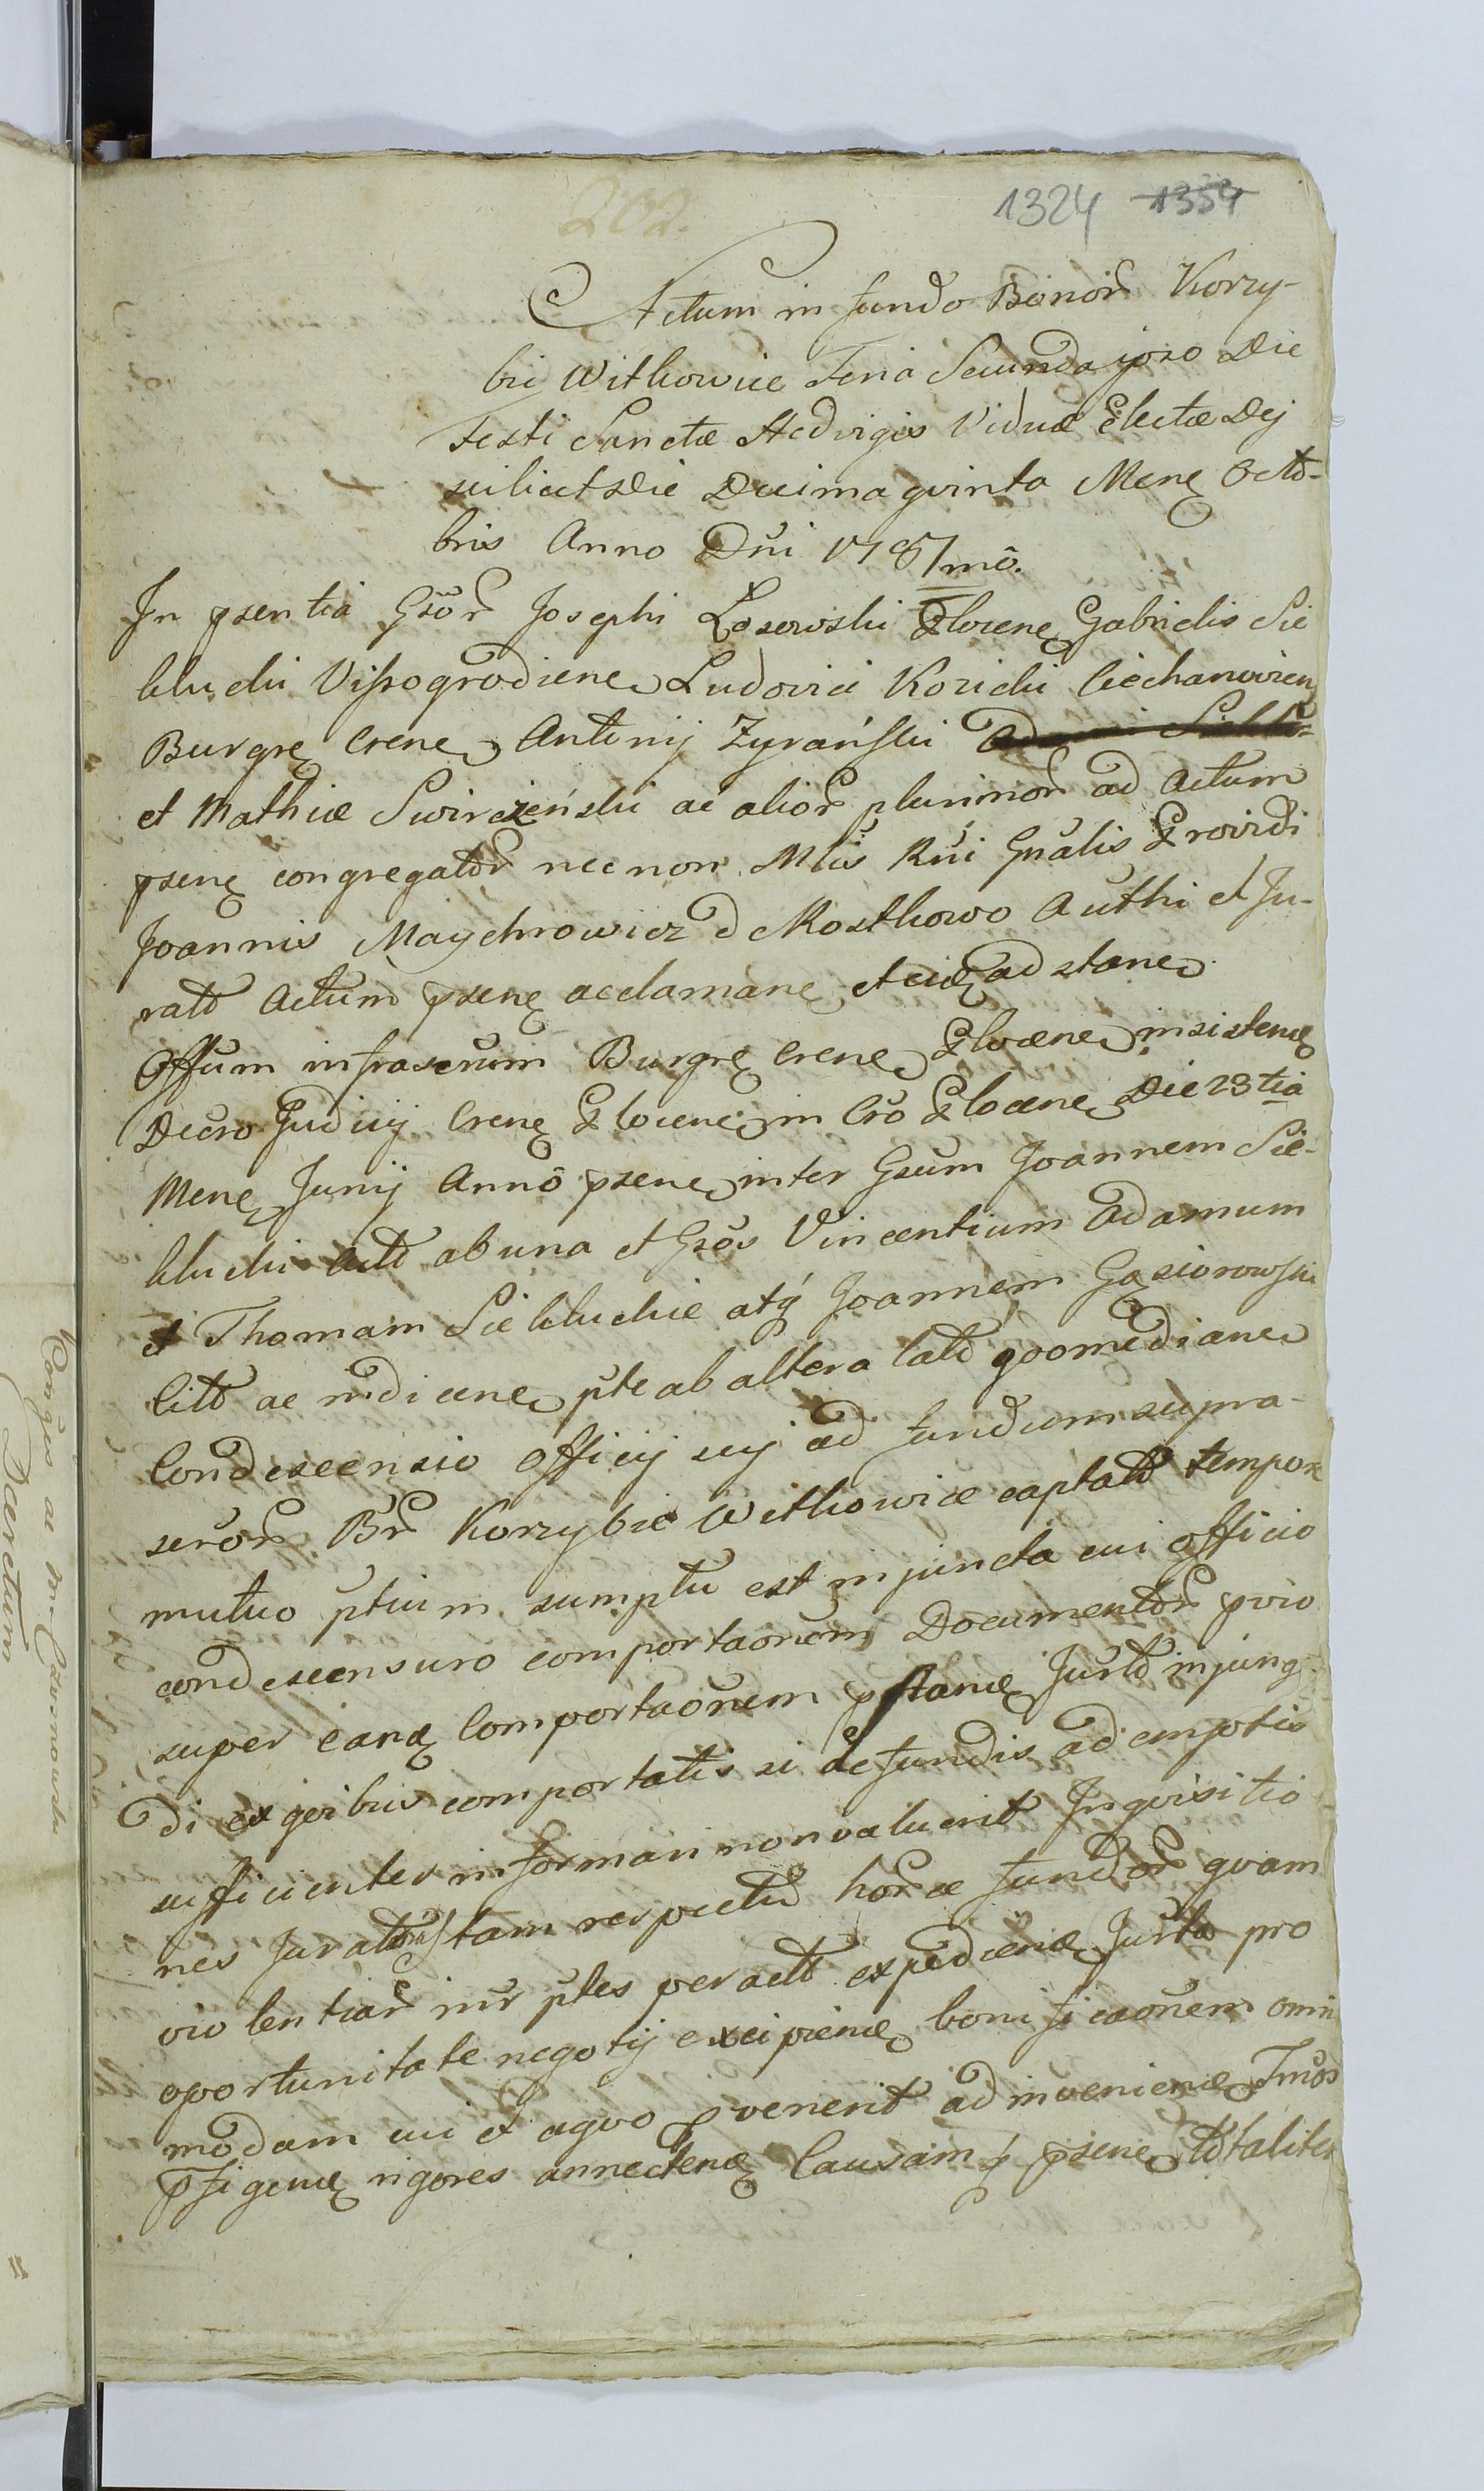 202.
1324 1354
Actum in fundo Bonor Korzy-
bie Witkowice Feria Secunda ipso Die
Festi Sanctæ Hedvigis Viduæ Electæ Dej
scilicet Die Decima qvinta Mene Octo-
bris Anno Dni 1781mo.
In psentia Gsor Josephi Losowski Plocene Gabrielis Sie
kluchi Vissogrodiene Ludovici Kozicki Ciechanovien
Burgre Crene Antonij Zyrański
et Mathiæ Swirczeński ac alior plurimor ad Actum
psene congregator nec non Mlis Rni Gnalis Providi
Joannis Maychrowicz d Mostkowo Authi et Ju-
rati Actum psene acclamane et circa adstane
Offum infrascrum Burgre Crene Plocene insistene
Decro Judicij Crene Plocene in Cro Plocene Die 23tia
Mene Junij Anno psene inter Gsum Joannem Sie-
kluchi Act ab una et Gsos Vincentium Adamum
et Thomam Siekluckie atq Joannem Gąsiorowski
Citt ac indicene pte ab altera lato qvo mediane
Condescensio Officij sui ad fundum supra-
scror Br Korzybie Witkowice captato tempore
mutuo ptium sumptu est injuncta cui officio
condescensuro comportaonem Documentor prio
super eane Comportaonem pstane Jurto injung
di ex qvibus comportatis si de fundis ademptis
sufficienter informari non valuerit Inqvisitio
nes Jurator tam respectu hor ce fundor qvam
violentiar inr ptes peract expediene Jurta pro
oportunitate negotij excipiene bonificaonem omni
modam cui ex aqvo pvenerit adinveniene Tmos
pfigene rigores annectene Causamq psene totaliter
Decretum